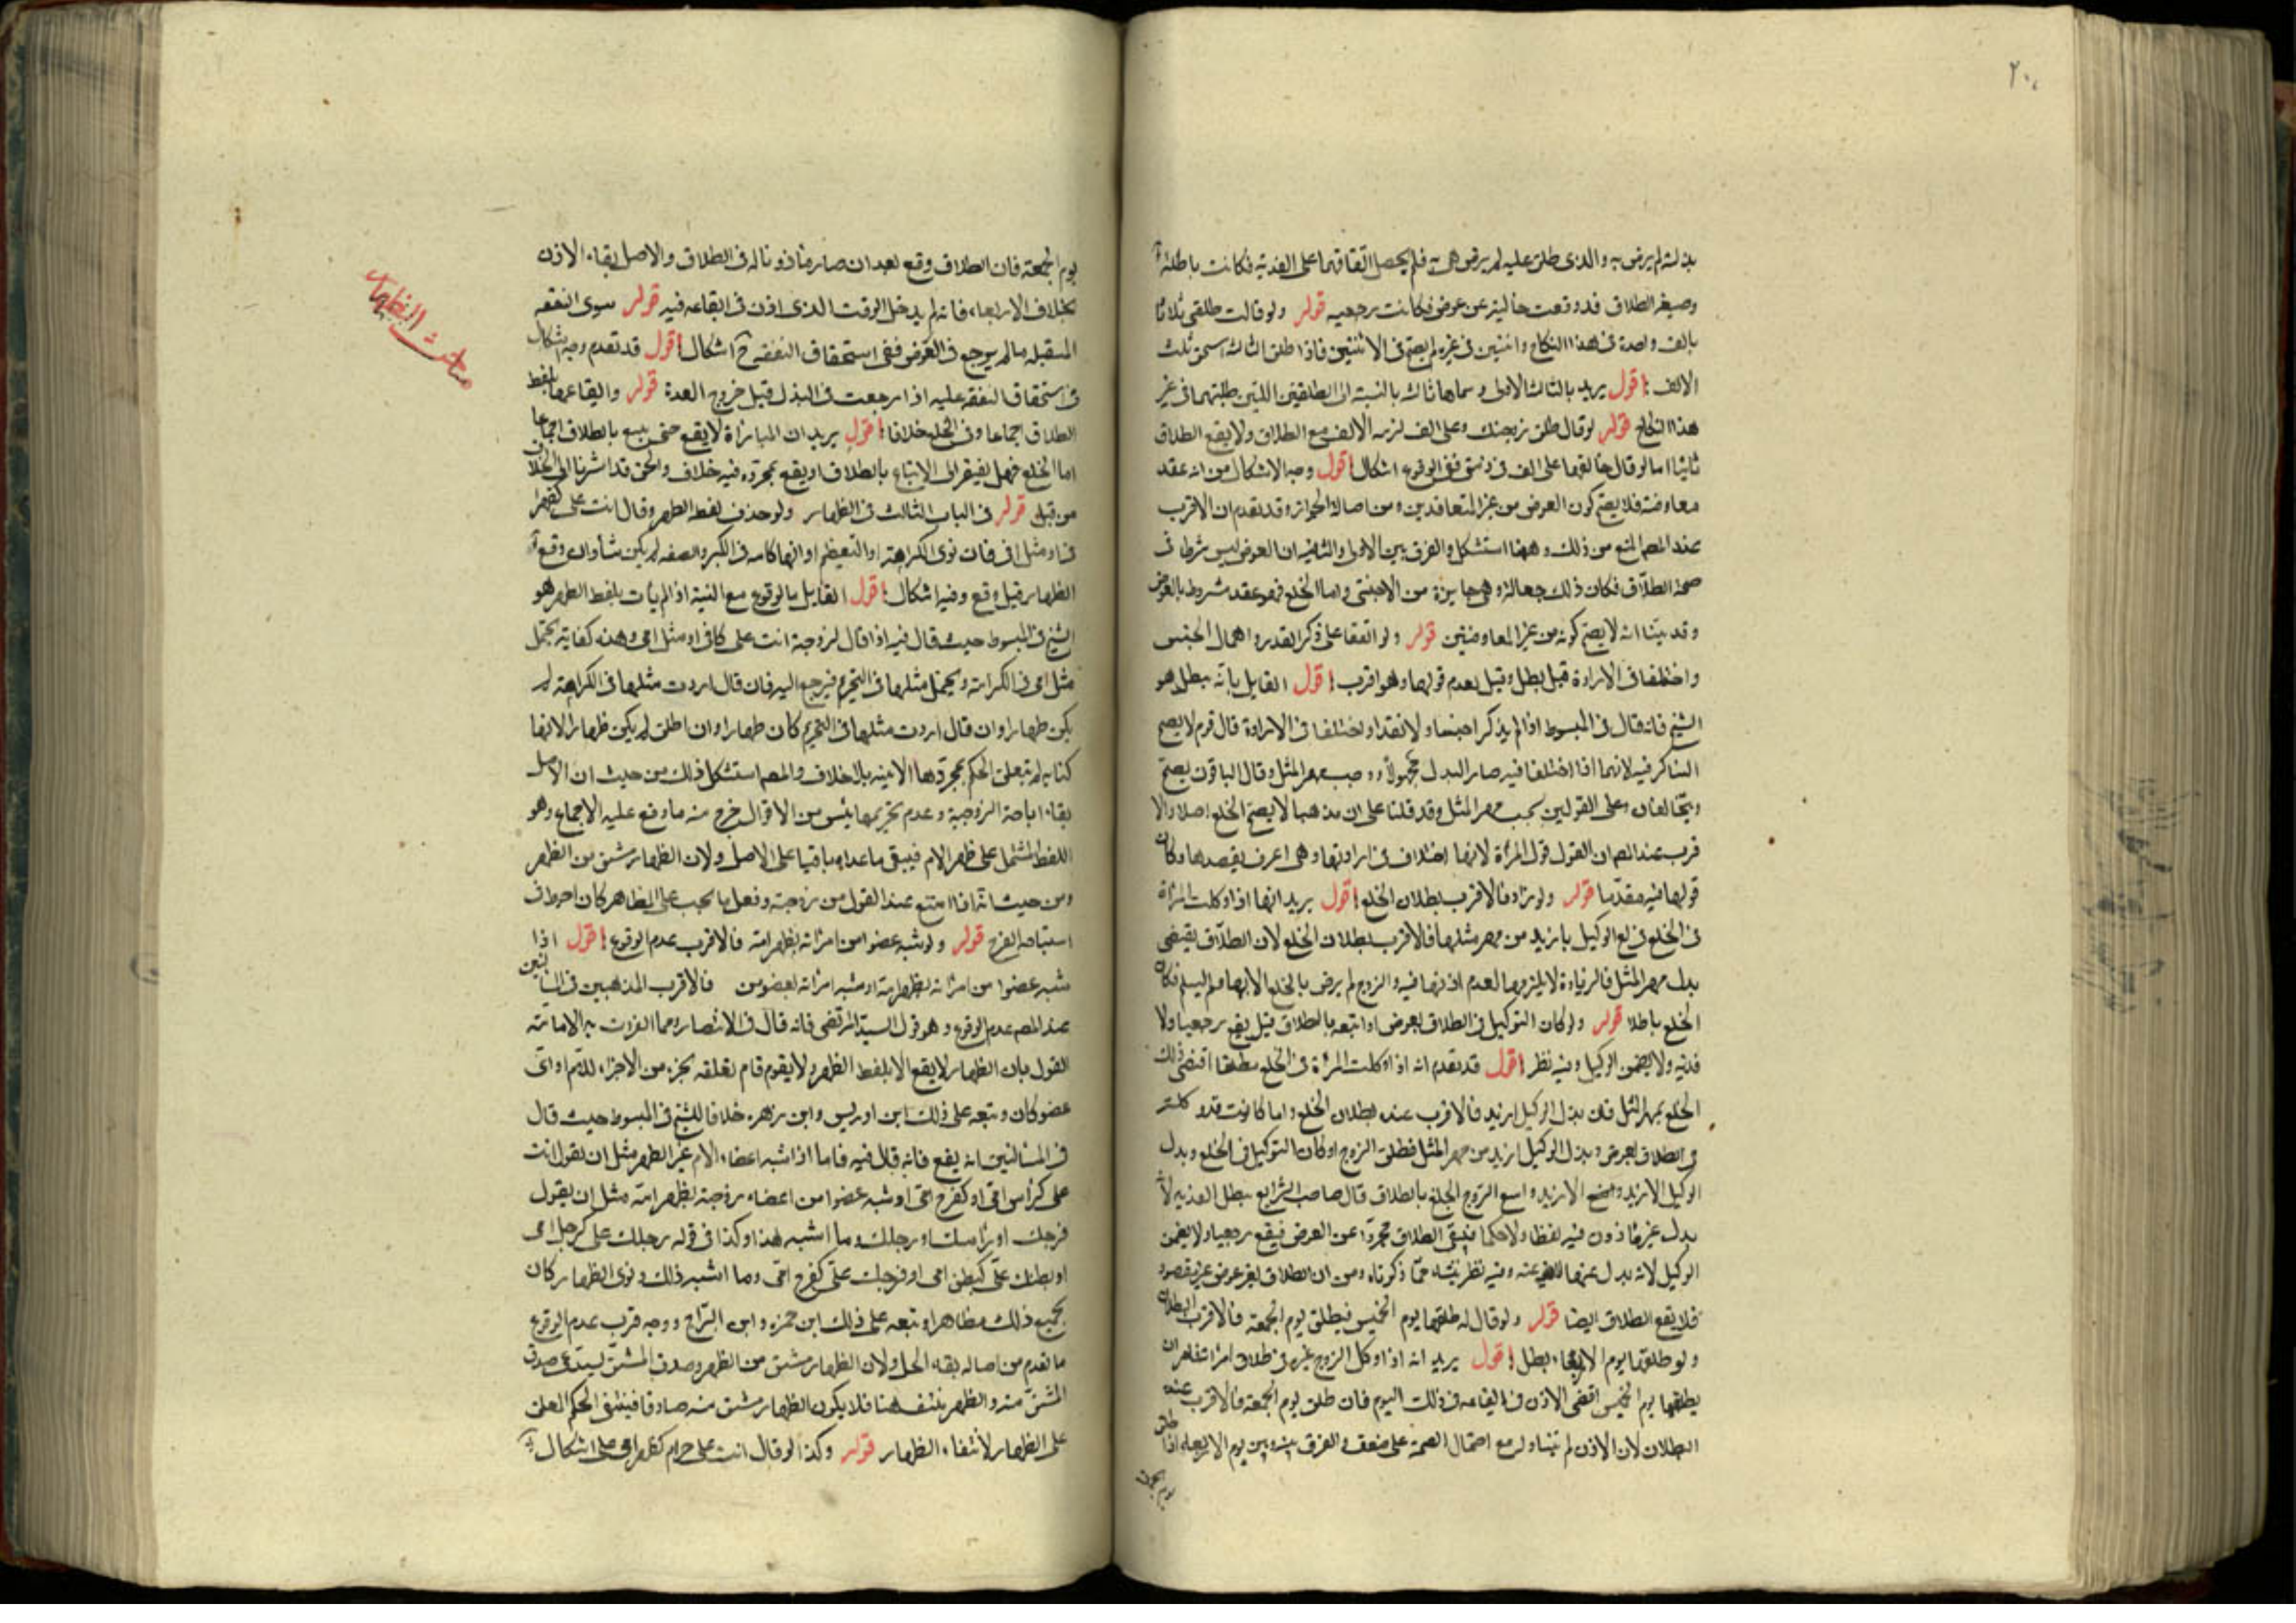 ٢٠٨
بذلته لم يرض به والذى طلق عليه لم يرض هى به فلم يحصل اتفاقهما على الفدية فكانت باطلة
وصيغة الطلاق قد وقعت خالية عن عوض فكانت رجعيه قوله ولو قالت طلقنى ثلاثا
بالف واحدة فى هذا النكاح واثنتين فى غيره لم يصح فى الاثنتين فاذا طلق الثالثة استحق ثلث
الالف اقول يريد بالثالثة الاولى وسماها ثالثة بالنسبة الى الطلقتين اللتين طلبتهما فى غير
هذا النكاح قوله لو قال طلق زوجتك وعلى الف لزمه الالف مع الطلاق ولا يقع الطلاق
ثانيا اما لو قال خالعها على الف فى ذمتى ففى الوقوع اشكال اقول وجه الاشكال من انه عقد
معاوضة فلا يصح كون العوض من غير المتعاقدين ومن اصالة الجواز وقد تقدم ان الاقرب
عند المصم المنع من ذلك وههنا استشكل والفرق بين الاولى والثانية ان العوض ليس شرطا فى
صحة الطلاق فكان ذلك جعالة وهى جايزة من الاجنبى واما الخلع فهو عقد مشروط بالعوض
وقد بينا انه لا يصح كونه من غير المتعاوضين قوله ولو اتفقا على ذكر القدر واهمال الجنس
واختلفا فى الارادة قيل يبطل وقيل يقدم قولها وهو اقرب اقول القايل بانه يبطل هو
الشيخ فانه قال فى المبسوط اذا لم يذكر اجنسا ولا نقدا واختلفا فى الارادة قال قوم لا يصح
التناكر فيه لانهما اذا اختلفا فيه صار البدل مجهولا ووجب مهر المثل وقال الباقون يصح
ويتحالفان وعلى القولين يجب مهر المثل وقد قلنا على ان مذهبنا لا يصح الخلع اصلا والا
قرب عند المصم ان القول قول المراة لانها اختلاف فى ارادتها وهى اعرف بقصدها وكان
قولها فيه مقدما قوله ولو زاد فالاقرب بطلان الخلع اقول يريد انها اذا وكلت المراة
فى الخلع فخلع الوكيل بازيد من مهر مثلها فالاقرب بطلان الخلع لان الطلاق يقتضى
بدل مهر المثل فالزيادة لا يلزمها لعدم اذنها فيه والزوج لم يرض بالخلع الا بها ولم يسلم فكان
الخلع باطلا قوله ولو كان التوكيل فى الطلاق بعوض او اتبعه بالطلاق قيل يقع رجعيا ولا
فدية ولا يضمن الوكيل وفيه نظر اقول قد تقدم انه اذا وكلت المراة فى الخلع مطلقا اقتضى ذلك
الخلع بمهر المثل فان بذل الوكيل ازيد فالاقرب عند بطلان الخلع واما كانت قد وكلته
فى الطلاق بعوض وبذل الوكيل ازيد من مهر المثل فطلق الزوج او كان التوكيل فى الخلع وبذل
الوكيل الازيد واتبع الزوج الخلع بالطلاق قال صاحب الشرايع يبطل الفدية لانه
بذل غير ماذون فيه لفظا ولا حكما فيبقى الطلاق مجردا عن العوض فيقع رجعيا ولا يضمن
الوكيل لانه بذل عنها وفيه نظر ينشاء مما ذكرناه ومن ان الطلاق بغير عوض غير مقصود
فلا يقع الطلاق ايضا قوله ولو قال له طلقها يوم الخميس فيطلق يوم الجمعة فالاقرب البطلان
ولو طلقها يوم الاربعاء بطل اقول يريد انه اذا وكل الزوج غيره فى طلاق امراته
يطلقها يوم الخميس اقتضى الاذن فى ايقاعه فى ذلك اليوم فان طلق يوم الجمعة فالاقرب عنده
البطلان لان الاذن لم يتناوله مع احتمال الصحة على ضعف والفرق بينه وبين يوم الاربعاء اذا طلق
يوم الجمعة
يوم الجمعة فان الطلاق وقع بعد ان صار ماذونا له فى الطلاق والاصل بقاء الاذن
بخلاف الاربعاء فانه لم يدخل الوقت الذى اذن فى ايقاعه فيه قوله سوى النفقه
المستقبله مالم يرجع فى العوض ففى استحقاق النفقه ح اشكال اقول قد تقدم وجه الاشكال
فى استحقاق النفقه عليه اذا رجعت فى البذل قبل خروج العدة قوله وايقاعها بلفظ
الطلاق اجماعا وفى الخلع خلافا اقول يريد ان المباراة لا يقع حتى يتبع بالطلاق اجماعا
اما الخلع فهل يفتقر الى الاتباع بالطلاق او يقع بمجرده فيه خلاف والحق قد اشرنا الى الخلاف
من قبل قوله فى الباب الثالث فى الظهار ولو حذف لفظ الظهر وقال انت على كظهر
فى او مثل امى فان نوى الكرامة او التعظيم او انها كامه فى الكبر والصفه لم يكن شأ وان وقع
الظهار قيل وقع وفيه اشكال اقول القايل بالوقوع مع النية اذا لم يات بلفظ الظهر هو
الشيخ فى المبسوط حيث قال فيه اذا قال لزوجة انت على كامى او مثل امى وهذه كناية يحتمل
مثل امى فى الكرامة ويحتمل مثلها فى التحريم فيرجع اليه فان قال اردت مثلها فى الكرامة لم
يكن ظهارا وان قال اردت مثلها فى التحريم كان ظهارا وان اطلق لم يكن ظهارا لانها
كنايه لم يتعلق الحكم بمجردها الا بنيه بلا خلاف والمصم استشكل ذلك من حيث ان الاصل
بقاء اباحة الزوجية وعدم تحريمها بشئ من الاقوال خرج منه ما وقع عليه الاجماع وهو
اللفظ المشتمل على ظهر الام فيبقى ما عداه باقيا على الاصل ولان الظهار مشتق من الظهر
ومن حيث انه اذا امتنع عند القول من زوجته وفعل ما يجب على المظاهر كان احوط فى
استباحة الفرج قوله ولو شبه عضوا من امراته بظهر امه فالاقرب عدم الوقوع اقول اذا
شبه عضوا من امراته بظهر امه او شبه امراته بعضو من فالاقرب المذهبين فى المسالتين
عند المصم عدم الوقوع وهو قول السيد المرتضى فانه قال فى الانتصار ومما انفردت به الامامية
القول بان الظهار لا يقع الا بلفظ الظهر ولا يقوم مقام تعلقه بجزء من الاجزاء للام او اى
عضو كان وتبعه على ذلك ابن ادريس وابن زهره خلافا للشيخ فى المبسوط حيث قال
فى المسالتين انه يقع فانه قال فيه فاما اذا شبه اعضاء الام غير الظهر مثل ان يقول انت
على كراس امى او كفرج امى او شبه عضوا من اعضاء زوجته بظهر امه مثل ان يقول
فرجك او راسك او رجلك وما اشبه هذا وكذا فى قوله رجلك على كرجل امى
او بطنك على كبطن امى او فرجك على كفرج امى وما اشبه ذلك ونوى الظهار كان
بجميع ذلك مظاهرا وتبعه على ذلك ابن حمزه وابن البراج ووجه قرب عدم الوقوع
ما تقدم من اصاله بقاء الحل ولان الظهار مشتق من الظهر وصدق المشتق يستدعى صدق
المشتق منه والظهر منتف هنا فلا يكون الظهار مشتق منه صادقا فينتفى الحكم المعلق
على الظهار لانتفاء الظهار قوله وكذا لو قال انت على حرام كظهر امى على اشكال
مباحث الظهار